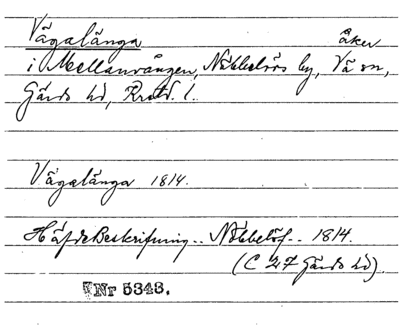 Vägalänga åker
i Mellanvången, Nöbbelövs by, Vä sn,
Gärds hd, Krstd. l.
Vägalänga 1814.
Häfde Beskrifning.. Nöbbelöf.. 1814.
(C 27 Gärds hd).
Nr 5343.